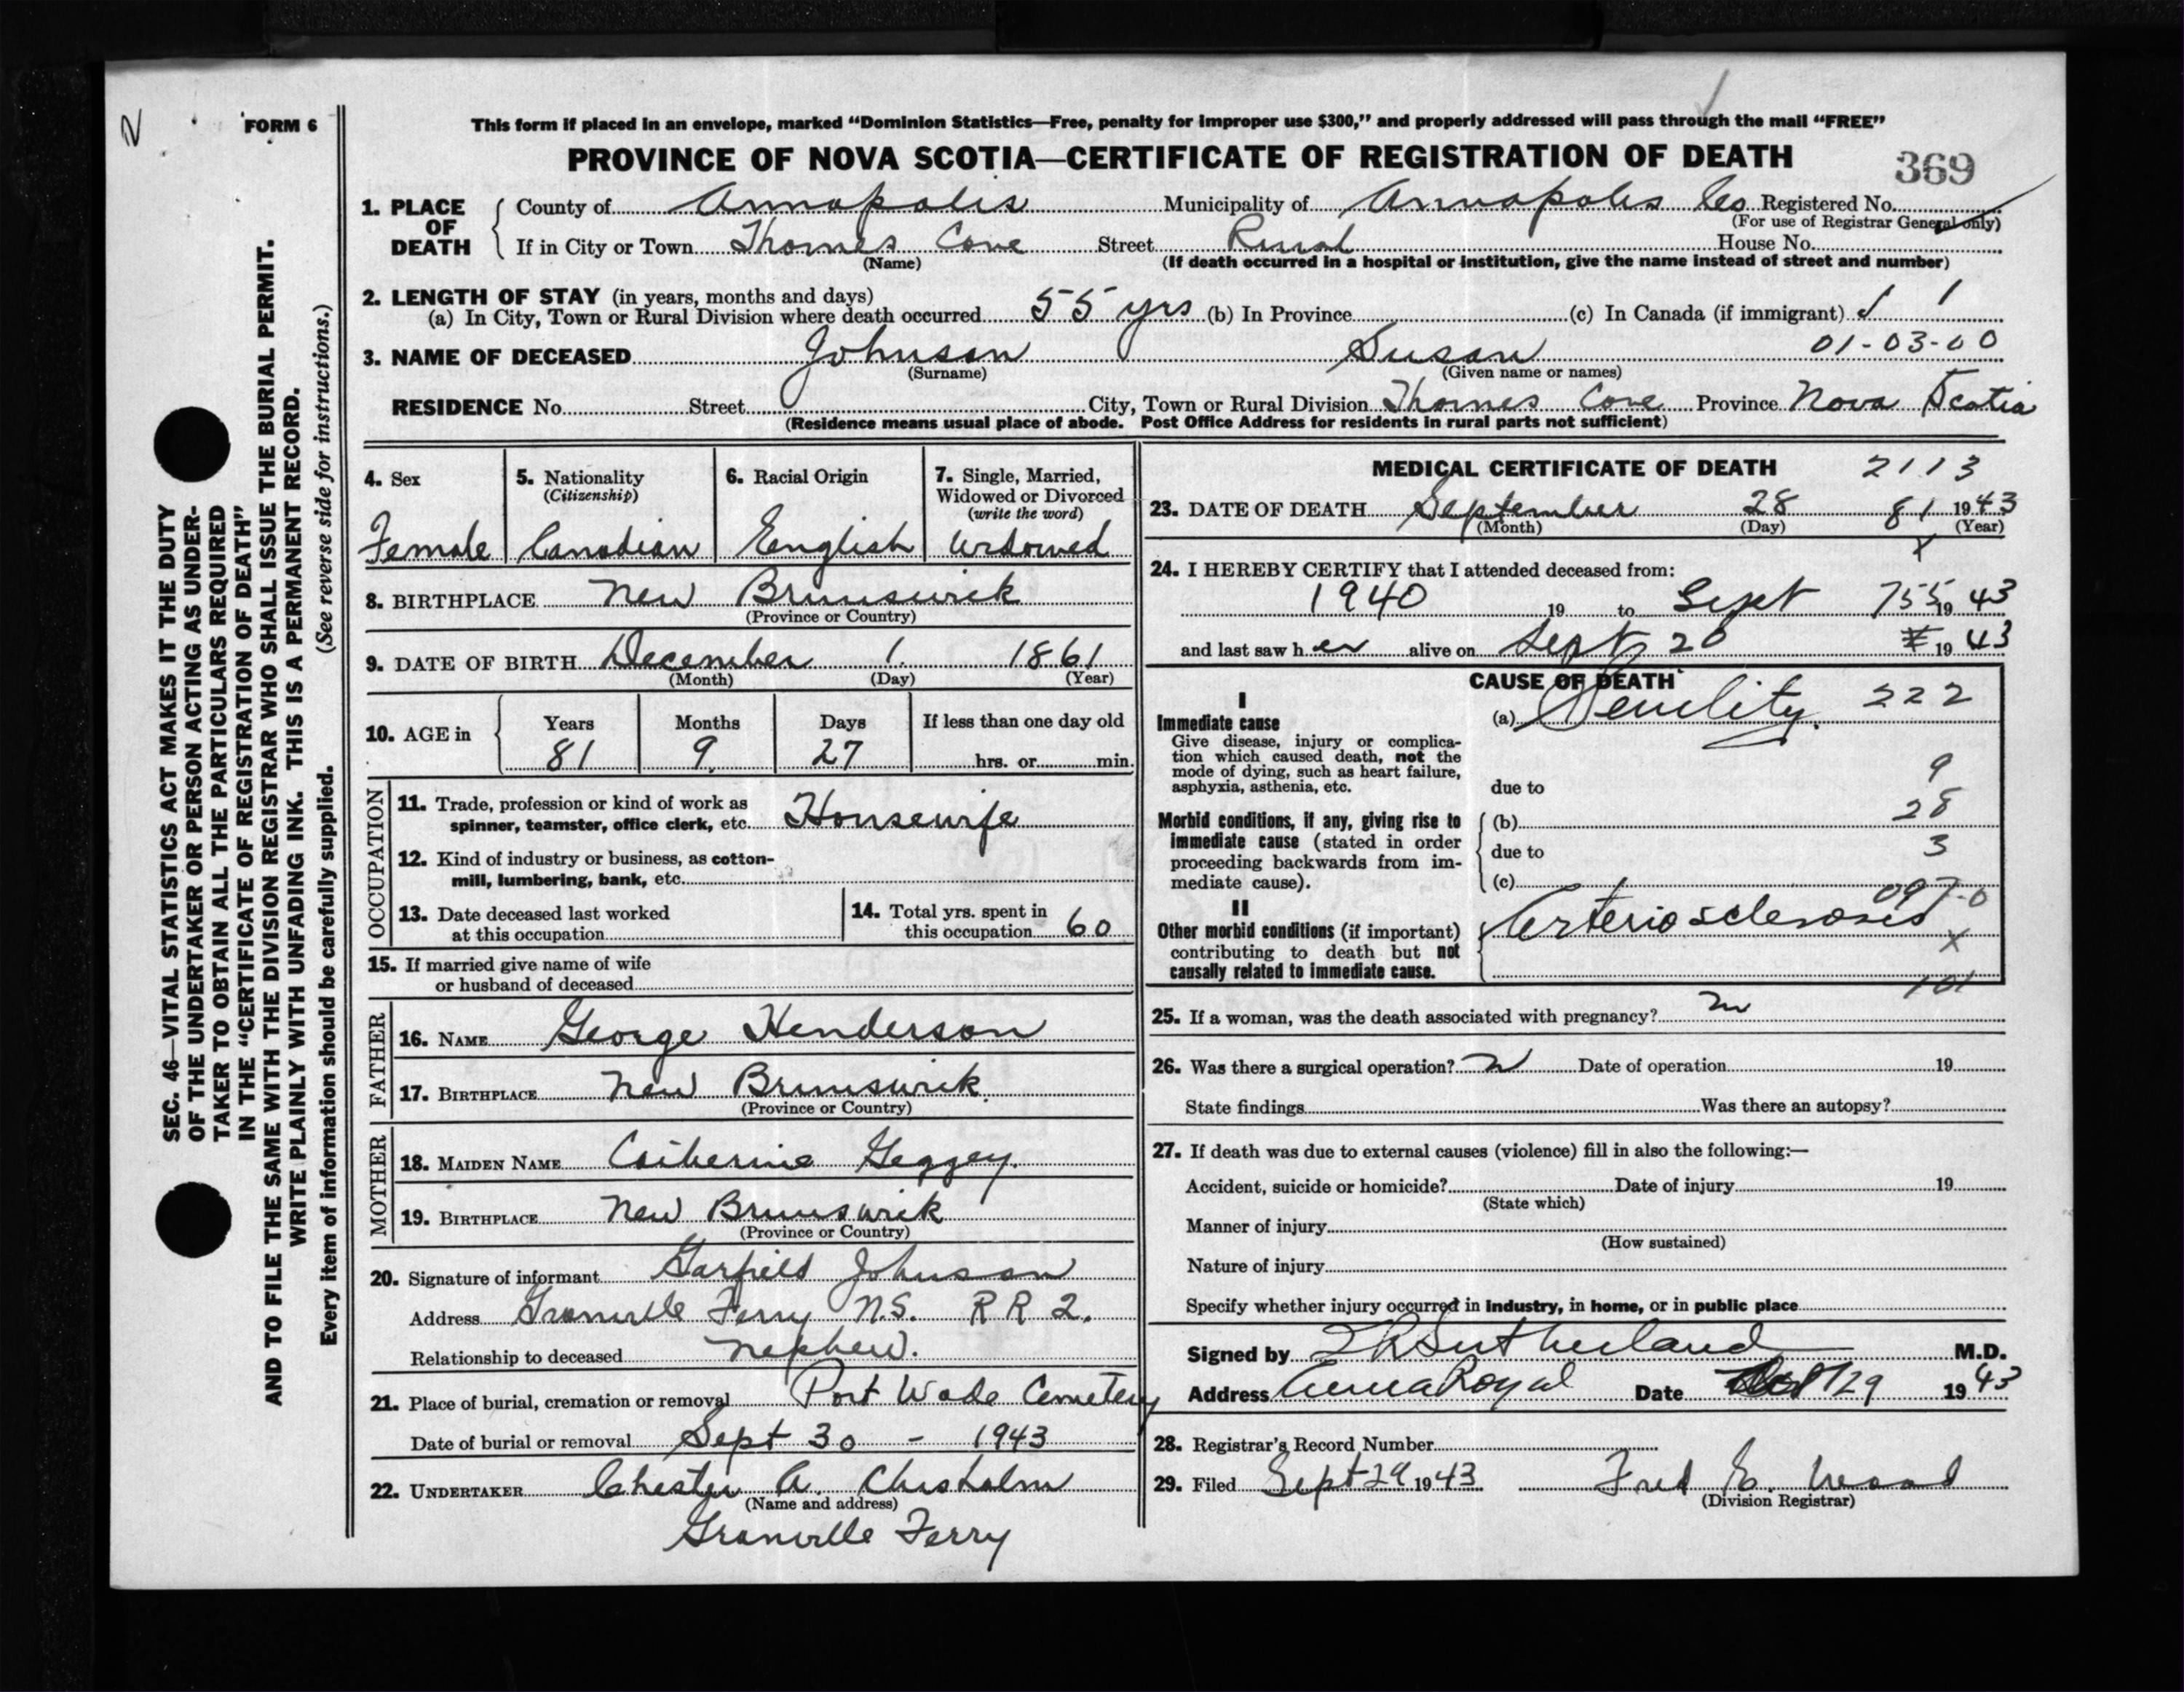 N
FORM 6
This form if placed in an envelope, marked “Dominion Statistics—Free, penalty for improper use $300,” and properly addressed will pass through the mail “FREE”
PROVINCE OF NOVA SCOTIA—CERTIFICATE OF REGISTRATION OF DEATH
369
1. PLACE OF DEATH County of Annapolis Municipality of Annapolis Co Registered No.
(For use of Registrar General only)
If in City or Town Thornes Cove Street Rural House No.
(Name) (If death occurred in a hospital or institution, give the name instead of street and number)
2. LENGTH OF STAY (in years, months and days)
(a) In City, Town or Rural Division where death occurred 55 yrs (b) In Province (c) In Canada (if immigrant) 1
3. NAME OF DECEASED Johnson Susan 01-03-00
(Surname) (Given name or names)
RESIDENCE No. Street City, Town or Rural Division Thornes Cove Province Nova Scotia
(Residence means usual place of abode. Post Office Address for residents in rural parts not sufficient)
4. Sex 5. Nationality 6. Racial Origin 7. Single, Married,
(Citizenship) Widowed or Divorced
(write the word)
Female Canadian English Widowed
8. BIRTHPLACE New Brunswick
(Province or Country)
9. DATE OF BIRTH December 1. 1861
(Month) (Day) (Year)
10. AGE in Years Months Days If less than one day old
81 9 27 hrs. or min.
OCCUPATION
11. Trade, profession or kind of work as
spinner, teamster, office clerk, etc. Housewife
12. Kind of industry or business, as cotton-
mill, lumbering, bank, etc.
13. Date deceased last worked
at this occupation
14. Total yrs. spent in
this occupation 60
15. If married give name of wife
or husband of deceased
FATHER
16. NAME George Henderson
17. BIRTHPLACE New Brunswick
(Province or Country)
MOTHER
18. MAIDEN NAME Catherine Geggey.
19. BIRTHPLACE New Brunswick
(Province or Country)
20. Signature of informant Garfield Johnson
Address Granville Ferry N.S. R R 2.
Relationship to deceased nephew.
21. Place of burial, cremation or removal Port Wade Cemetery
Date of burial or removal Sept 30 - 1943
22. UNDERTAKER Chester A. Chisholm
(Name and address)
Granville Ferry
MEDICAL CERTIFICATE OF DEATH 2113
23. DATE OF DEATH September 28 81 1943
(Month) (Day) (Year)
X
24. I HEREBY CERTIFY that I attended deceased from:
1940 19 to Sept 755 19 43
and last saw h er alive on Sept 20 19 43
CAUSE OF DEATH
I
Immediate cause (a) Senility. 222
Give disease, injury or complica-
tion which caused death, not the
mode of dying, such as heart failure,
asphyxia, asthenia, etc. due to 9
Morbid conditions, if any, giving rise to (b) 28
immediate cause (stated in order
proceeding backwards from im- due to 3
mediate cause). (c)
097-0
II
Other morbid conditions (if important) Arterio sclerosis
contributing to death but not X
causally related to immediate cause.
101
25. If a woman, was the death associated with pregnancy?
26. Was there a surgical operation? Date of operation 19
State findings Was there an autopsy?
27. If death was due to external causes (violence) fill in also the following:—
Accident, suicide or homicide? Date of injury 19
(State which)
Manner of injury
(How sustained)
Nature of injury
Specify whether injury occurred in industry, in home, or in public place
Signed by Sutherland M.D.
Address Anna Royal Date 29 1943
28. Registrar's Record Number
29. Filed Sept 29 1943 Fred E. Wood
(Division Registrar)
SEC. 46—VITAL STATISTICS ACT MAKES IT THE DUTY
OF THE UNDERTAKER OR PERSON ACTING AS UNDER-
TAKER TO OBTAIN ALL THE PARTICULARS REQUIRED
IN THE “CERTIFICATE OF REGISTRATION OF DEATH”
AND TO FILE THE SAME WITH THE DIVISION REGISTRAR WHO SHALL ISSUE THE BURIAL PERMIT.
WRITE PLAINLY WITH UNFADING INK. THIS IS A PERMANENT RECORD.
Every item of information should be carefully supplied. (See reverse side for instructions.)